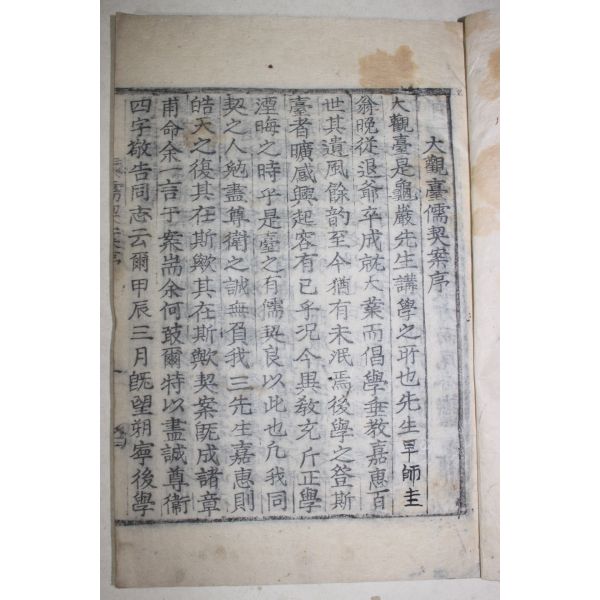 大觀臺儒契案序
大觀臺是龜巖先生講學之所也先生早師圭
翁晩從退爺卒成就大業而倡學垂敎嘉惠百
世其遺風餘韵至今猶有未泯焉後學之登斯
臺者曠感興起容有已乎況今異敎充斥正學
湮晦之時乎是臺之有儒契良以此也凢我同
契之人勉盡尊衛之誠無負我三先生嘉惠則
皓天之復其在斯歟其在斯歟契案旣成諸章
甫命余一言于案耑余何敢爾特以盡誠尊衛
四字敬告同志云爾甲辰三月旣望朔寧後學